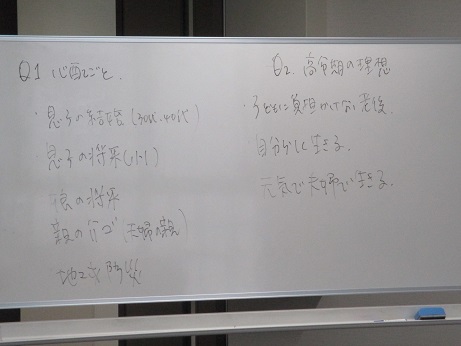 Q1 心配ごと.
・息子の結婚(30代、40代)
息子の将来
の将来
親の介ゴ(夫婦の親)
Q2. 高令期の理想
・子どもに負担かけない老後.
自分らしく生きる.
元気で夫婦で生きる.